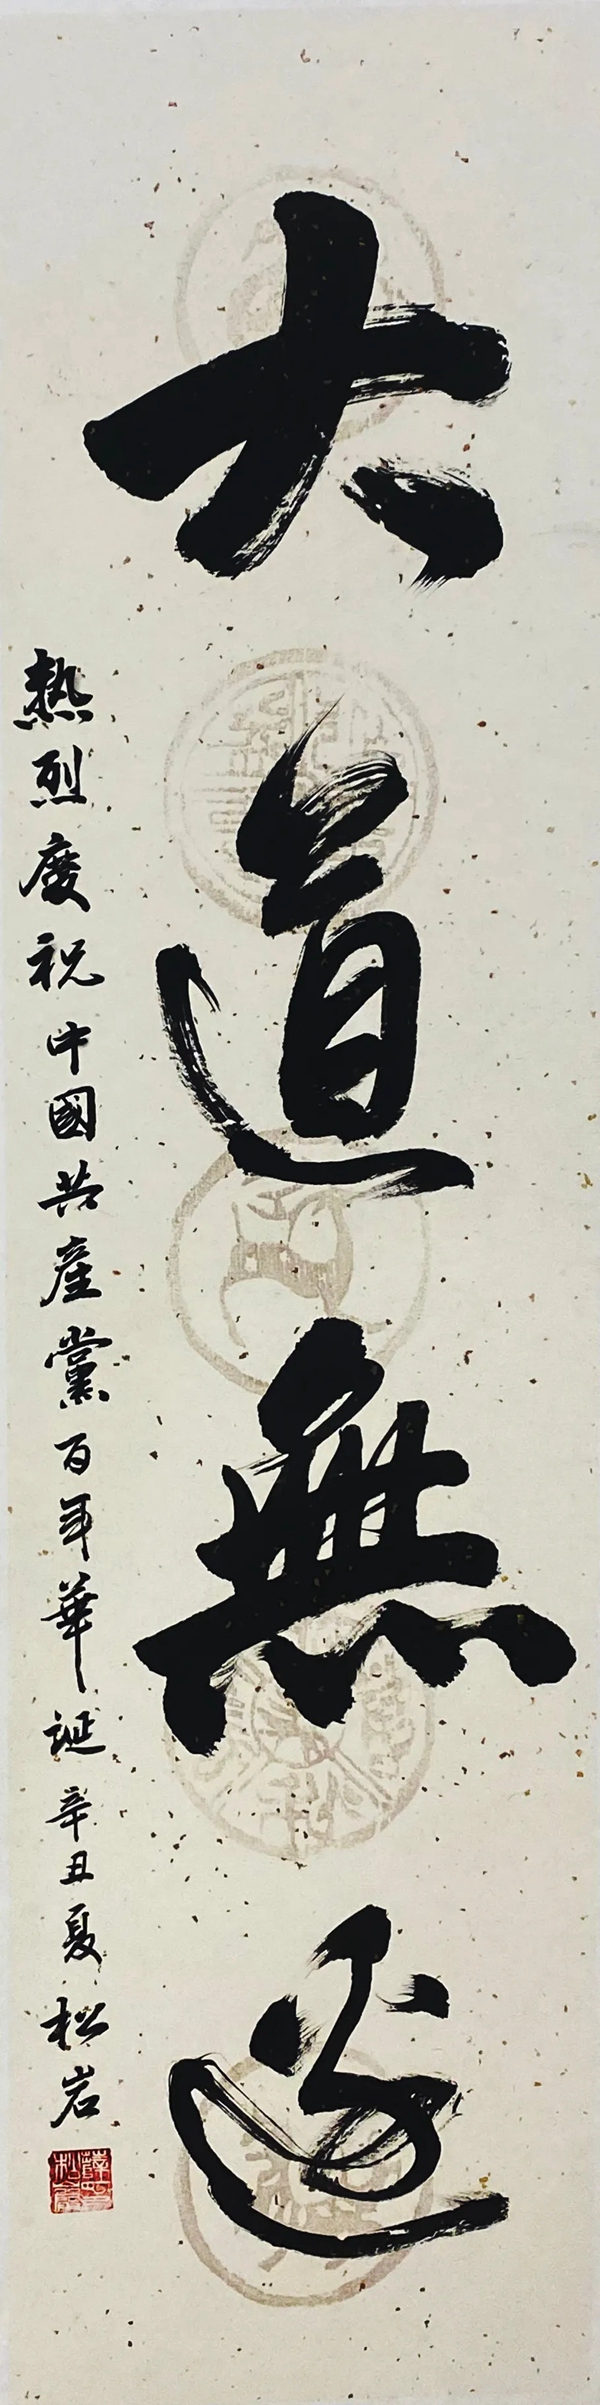 大道無邊
熱烈慶祝中國共產黨百年華誕 辛丑夏 松岩